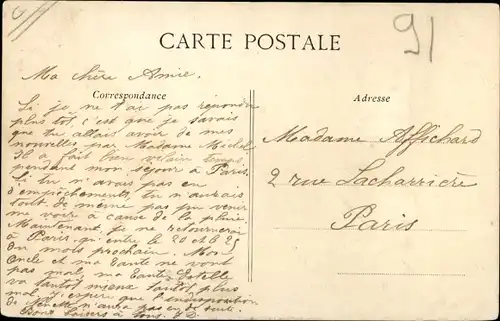 91
CARTE POSTALE
Ma chère Amie.
Correspondance
Si je ne t'ai pas répondu
plus tot, c'est que je savais
que tu allais avoir de mes
nouvelles par Madame Michel
Il a fait bien vilain temps
pendant mon séjour à Paris.
Si tu n'avais pas eu
d'empêchements, tu n'aurais
tout de même pas pu venir
me voir à cause de la pluie.
Maintenant, je ne retournerai
à Paris qu'entre le 20 et le 25
du mois prochain. Mon
Oncle et ma Tante ne vont
pas mal, ma Tante Estelle
va tantot mieux tantot plus
mal. J'espère que l'indisposition
de n'aura pas eu de suite.
Bons baisers à tous. E.D.
Adresse
Madame Affichard
2 rue Lacharrière
Paris